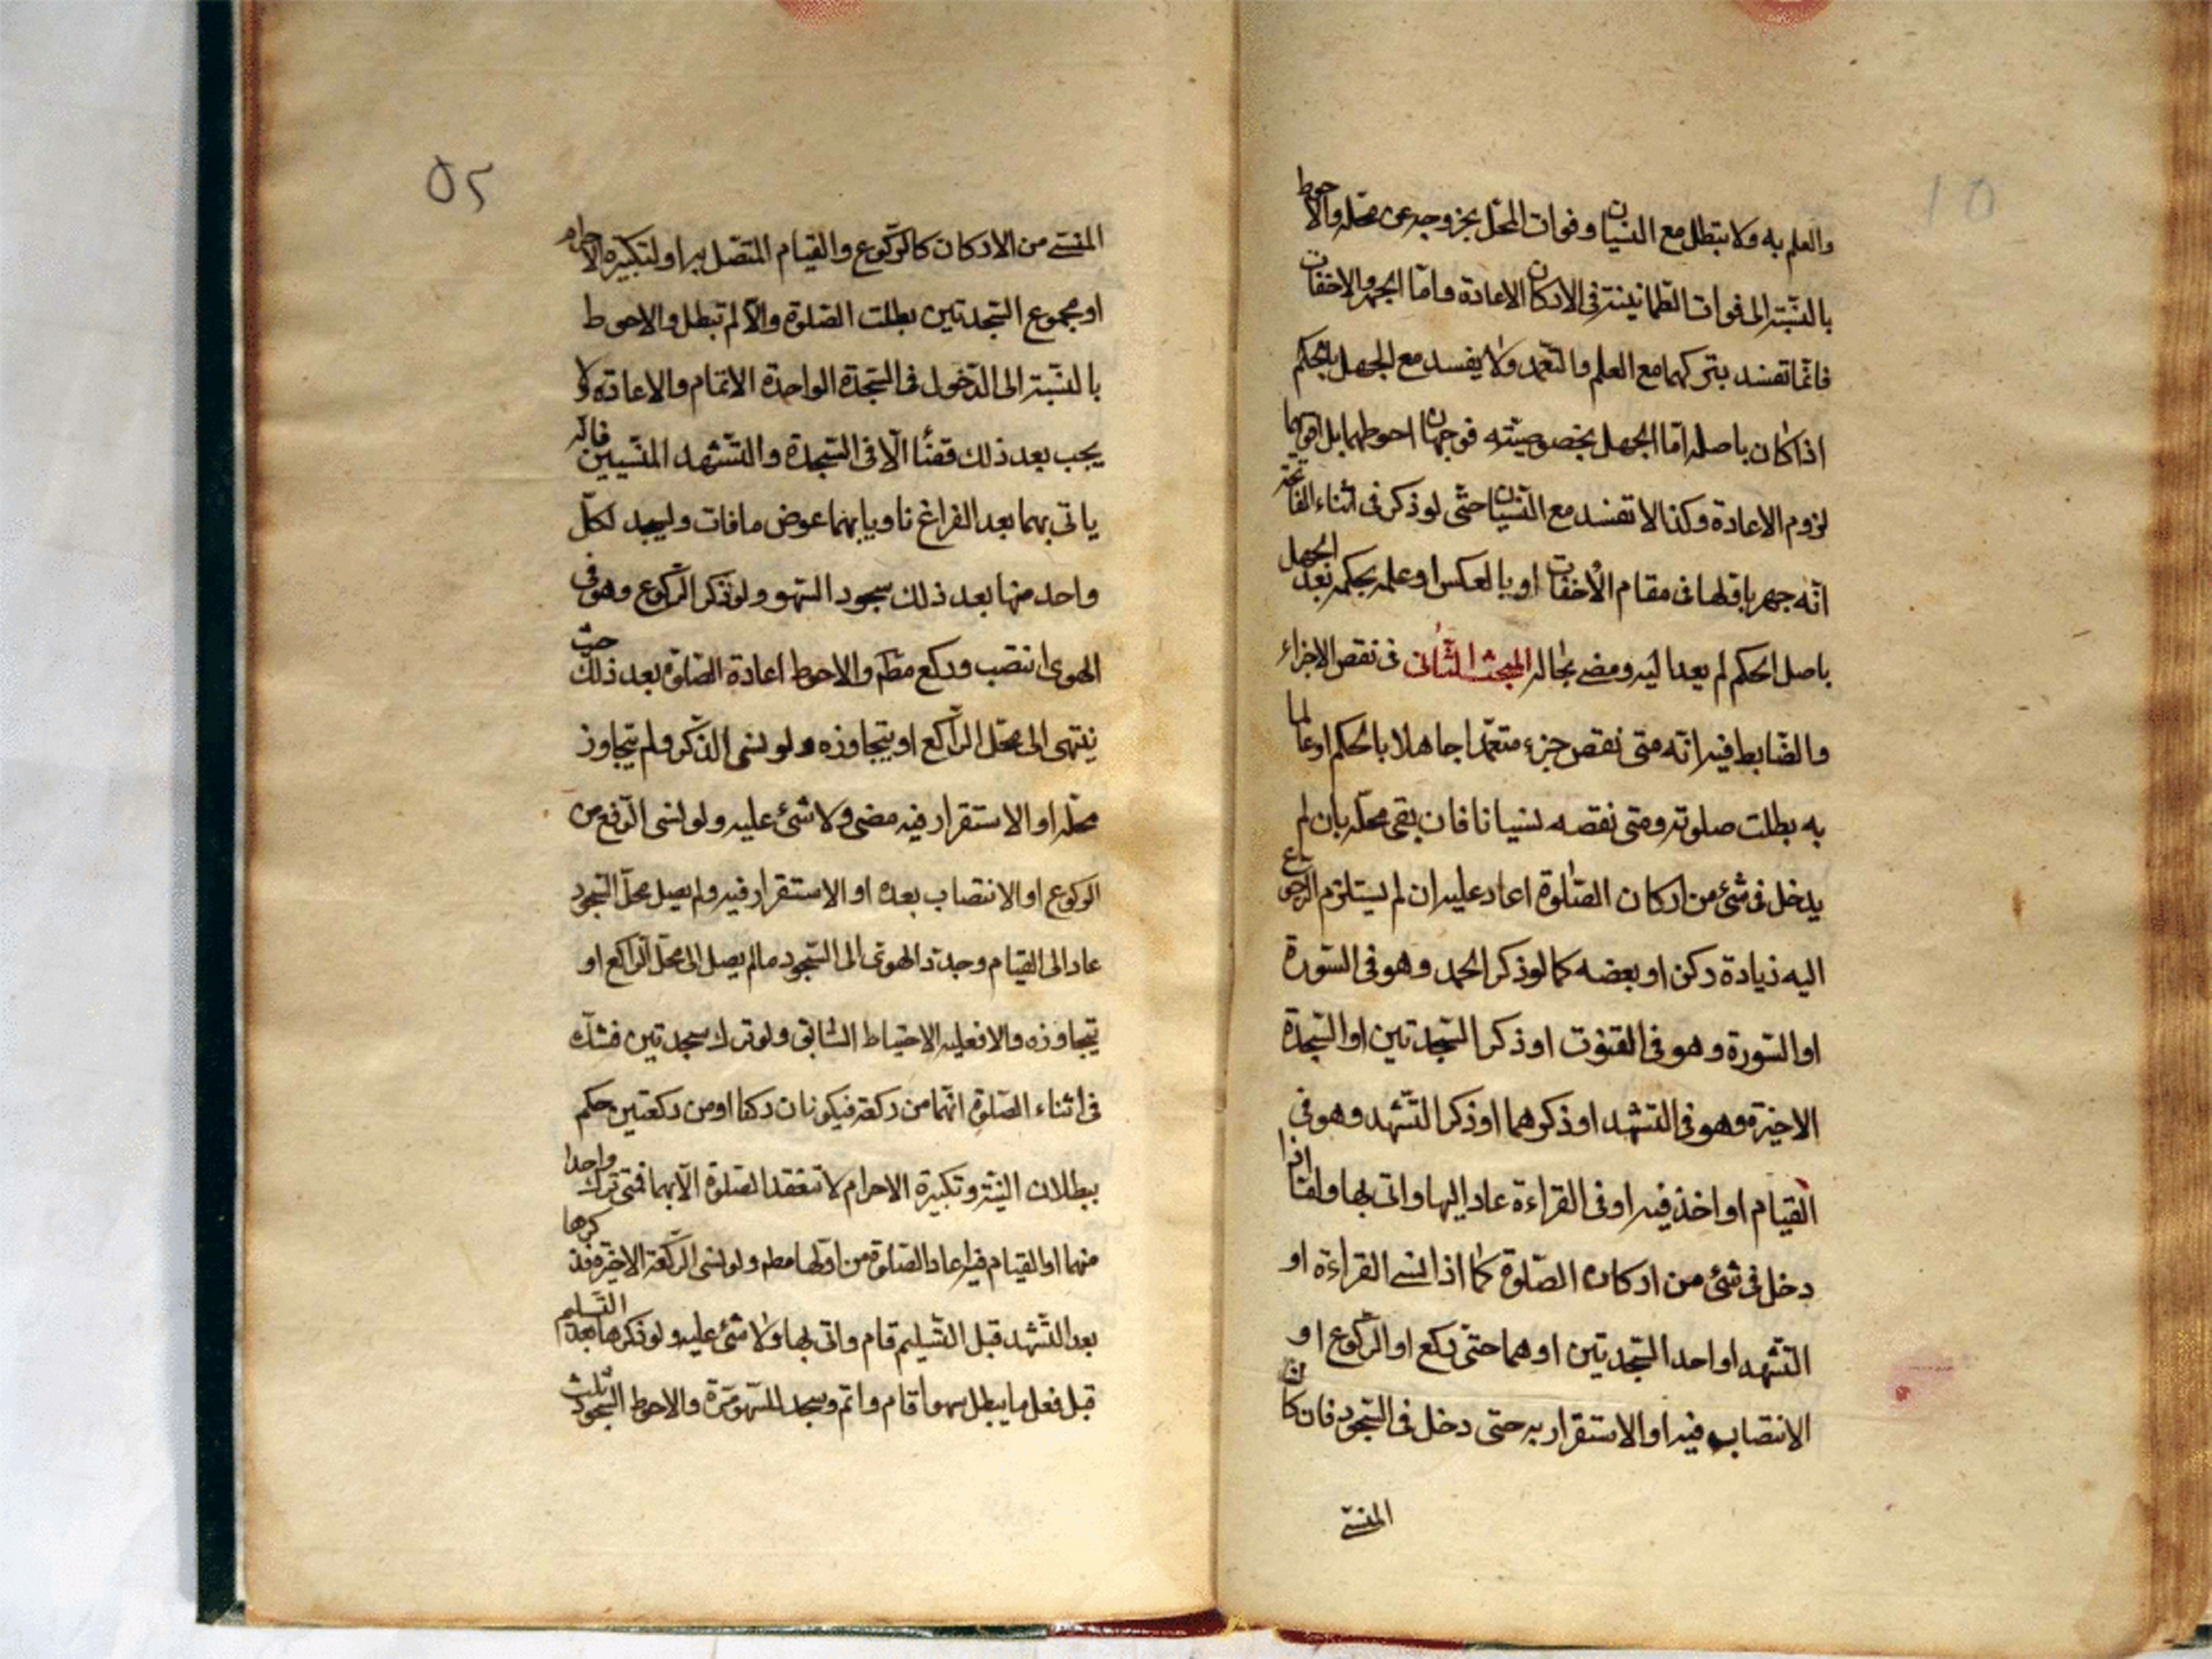 والعلم به ولا تبطل مع النسيان وفوات المحلّ بخروجه عن محله والاحوط
بالنّسبة الى فوات الطمانينة فى الاركان الاعادة وامّا الجهر والاخفات
فانّما تفسد بتركهما مع العلم والتعمد ولا يفسد مع الجهل بالحكم
اذا كان باصله امّا الجهل بخصوصيّته فوجهان احوطهما بل اقويهما
لزوم الاعادة وكذا لا تفسد مع النّسيان حتّى لو ذكر فى اثناء الفاتحة
انّه جهر باقلها فى مقام الاخفات او بالعكس او علم بحكمه بعد الجهل
باصل الحكم لم يعد اليه ومضى بحاله المبحث الثّانى فى نقص الاجزاء
والضّابط فيه انّه متى نقص جزء متعمّدا جاهلا بالحكم او عالما
به بطلت صلوته ومتى نقصه نسيانا فان بقى محلّه بان لم
يدخل فى شئ من اركان الصّلوة اعاد عليه ان لم يستلزم الرجوع
اليه زيادة ركن او بعضه كما لو ذكر الحمد وهو فى السّورة
او السّورة وهو فى القنوت او ذكر السّجدتين او السّجدة
الاخيرة وهو فى التشهّد او ذكرهما او ذكر التّشهد وهو فى
القيام او اخذ فيه او فى القراءة عاد اليها واتى بها وامّا اذا
دخل فى شئ من اركان الصّلوة كما اذا نسى القراءة او
التّشهد او احد السّجدتين او هما حتّى ركع او الرّكوع او
الانتصاب فيه او الاستقرار به حتى دخل فى السّجود فان كان
المنسىّ
٥٢
المنسىّ من الاركان كالرّكوع والقيام المتّصل به او لتكبيرة الاحرام
او مجموع السّجدتين بطلت الصّلوة والّا لم تبطل والاحوط
بالنّسبة الى الدّخول فى السّجدة الواحدة الاتمام والاعادة ولا
يجب بعد ذلك قضاء الّا فى السّجدة والتّشهد المنسّيين فانّه
ياتى بهما بعد الفراغ ناويا بهما عوض ما فات وليسجد لكلّ
واحد منها بعد ذلك سجود السّهو ولو ذكر الرّكوع وهو فى
الهوى انتصب وركع مطم والاحوط اعادة الصّلوة بعد ذلك حيث
ينتهى الى محلّ الرّاكع او يتجاوزه ولو نسى الذّكر ولم يتجاوز
محلّه او الاستقرار فيه مضى ولا شئ عليه ولو نسى الرّفع من
الركوع او الانتصاب بعده او الاستقرار فيه ولم يصل محلّ السّجود
عاد الى القيام وجدّد الهوى الى السّجود ما لم يصل الى محلّ الرّاكع او
يتجاوزه والا فعليه الاحتياط السّابق ولو ترك سجدتين فشكّ
فى اثناء الصّلوة انّهما من ركعة فيكونان ركنا او من ركعتين حكم
ببطلان النيّة وتكبيرة الاحرام لا تنعقد الصّلوة الّا بهما فمتى ترك واحدا
منهما او القيام فيه اعاد الصّلوة من اوّلها مطم ولو نسى الرّكعة الاخيرة فذكرها
بعد التّشهد قبل التّسليم قام واتى بها ولا شئ عليه ولو ذكرها بعد التّسليم
قبل فعل ما يبطل سهوا قام واتمّ وسجد للسّهو مرّة والاحوط السّجود ثلث